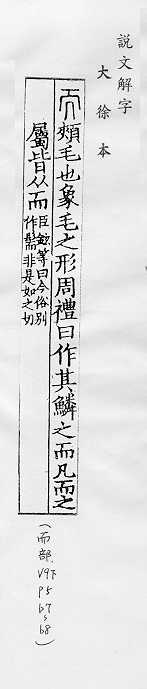 說文解字
大徐本
而頰毛也象毛之形周禮曰作其鱗之而凡而之
屬皆从而臣鉉等曰今俗別
作髵非是如之切
(而部、V9下 P5 b7~b8)